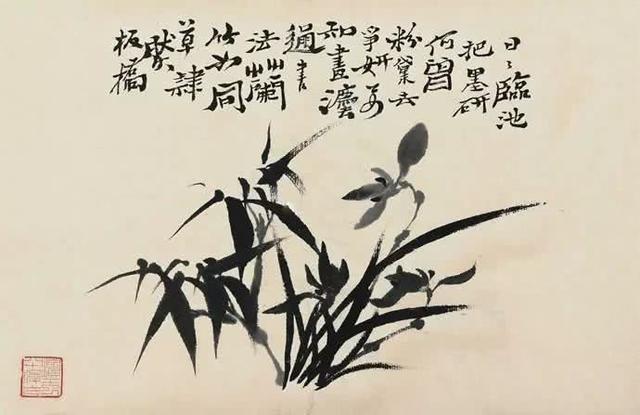 日々臨池
把墨研
何曾
粉黛去
爭妍要
知畫灋
通書
法蘭
竹如同
草隸
然
板橋